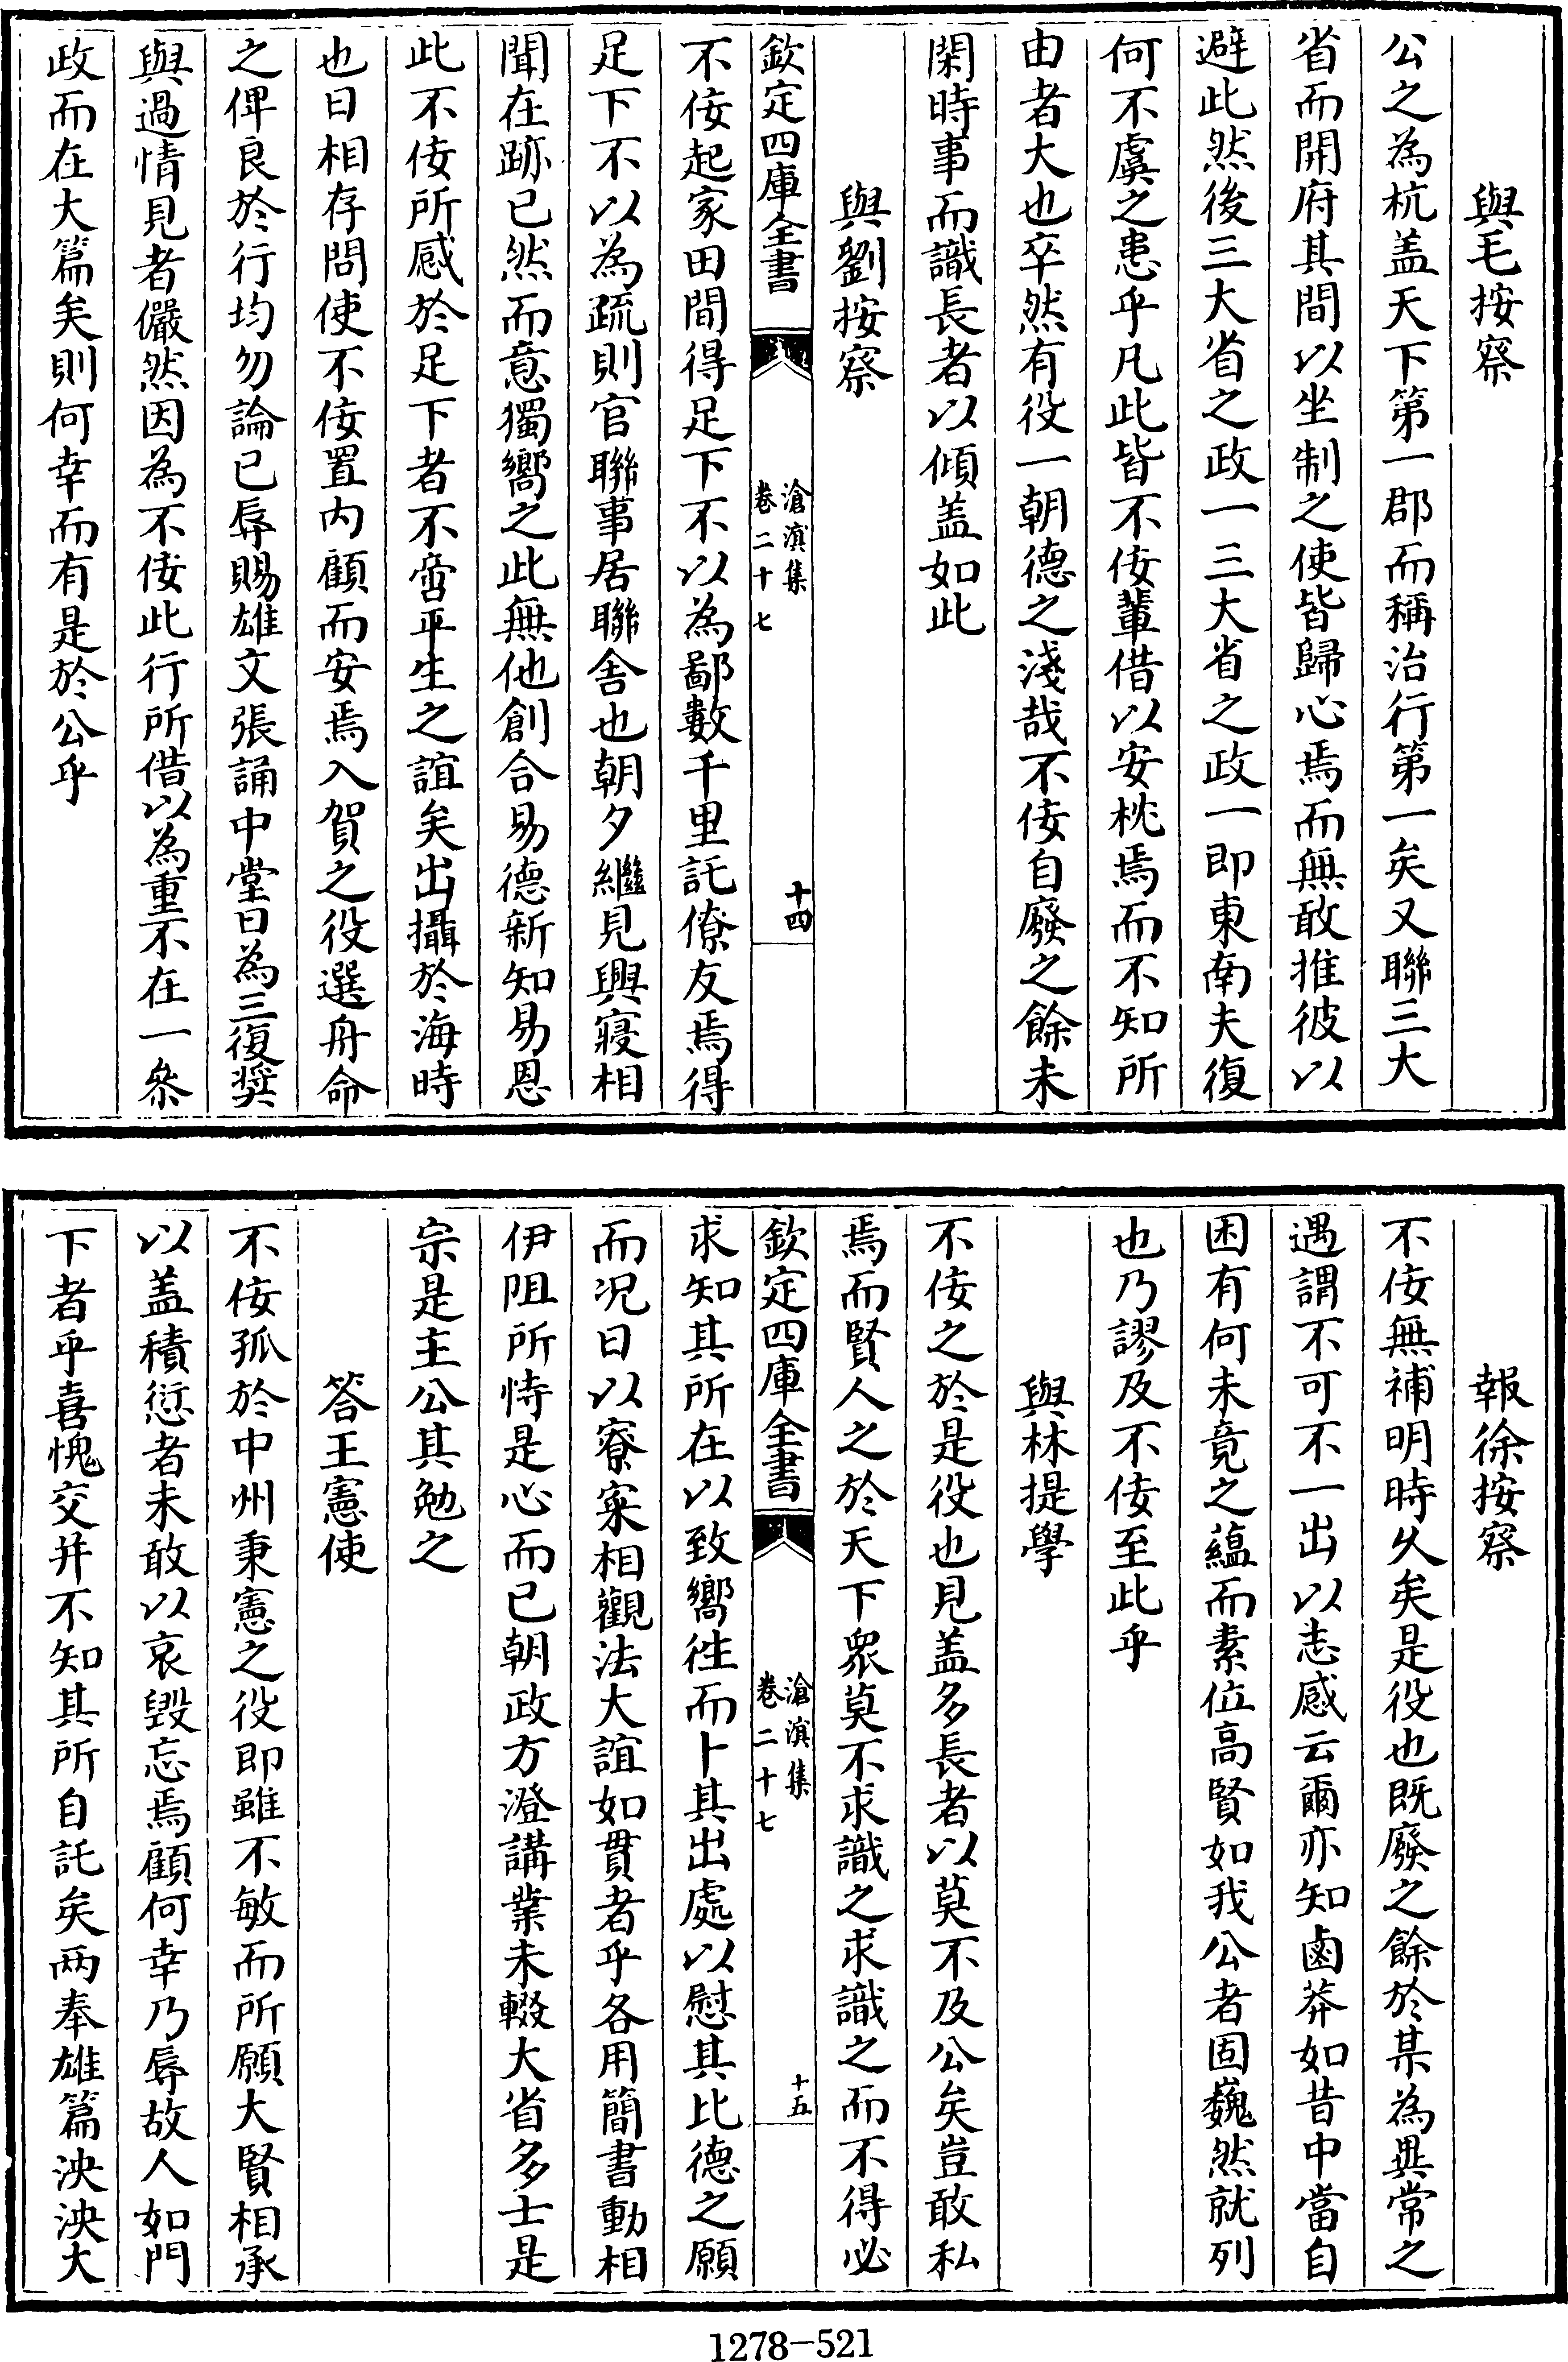 與毛按察
公之為杭盖天下第一郡而稱治行第一矣又聯三大
省而開府其間以坐制之使皆歸心焉而無敢推彼以
避此然後三大省之政一三大省之政一即東南夫復
何不虞之患乎凡此皆不佞輩借以安枕焉而不知所
由者大也卒然有役一朝德之淺哉不佞自廢之餘未
閑時事而識長者以傾盖如此
與劉按察
欽定四庫全書
滄溟集
卷二十七
十四
不佞起家田間得足下不以為鄙數千里託僚友焉得
足下不以為疏則官聯事居聯舍也朝夕繼見興寢相
聞在跡已然而意獨嚮之此無他創合易德新知易恩
此不佞所感於足下者不啻平生之誼矣出攝於海時
也日相存問使不佞置内顧而安焉入賀之役選舟命
之俾良於行均勿論已辱賜雄文張誦中堂曰為三復奬
與過情見者儼然因為不佞此行所借以為重不在一叅
政而在大篇矣則何幸而有是於公乎
報徐按察
不佞無補明時久矣是役也既廢之餘於某為異常之
遇謂不可不一出以志感云爾亦知鹵莽如昔中當自
困有何未竟之蘊而素位高賢如我公者固巍然就列
也乃謬及不佞至此乎
與林提學
不佞之於是役也見盖多長者以莫不及公矣豈敢私
焉而賢人之於天下衆莫不求識之求識之而不得必
欽定四庫全書
滄溟集
卷二十七
十五
求知其所在以致嚮徃而卜其出處以慰其比德之願
而况日以寮寀相觀法大誼如貫者乎各用簡書動相
伊阻所恃是心而已朝政方澄講業未輟大省多士是
宗是主公其勉之
答王憲使
不佞孤於中州秉憲之役即雖不敏而所願大賢相承
以盖積愆者未敢以哀毁忘焉顧何幸乃辱故人如門
下者乎喜愧交并不知其所自託矣两奉雄篇泱泱大
1278-521